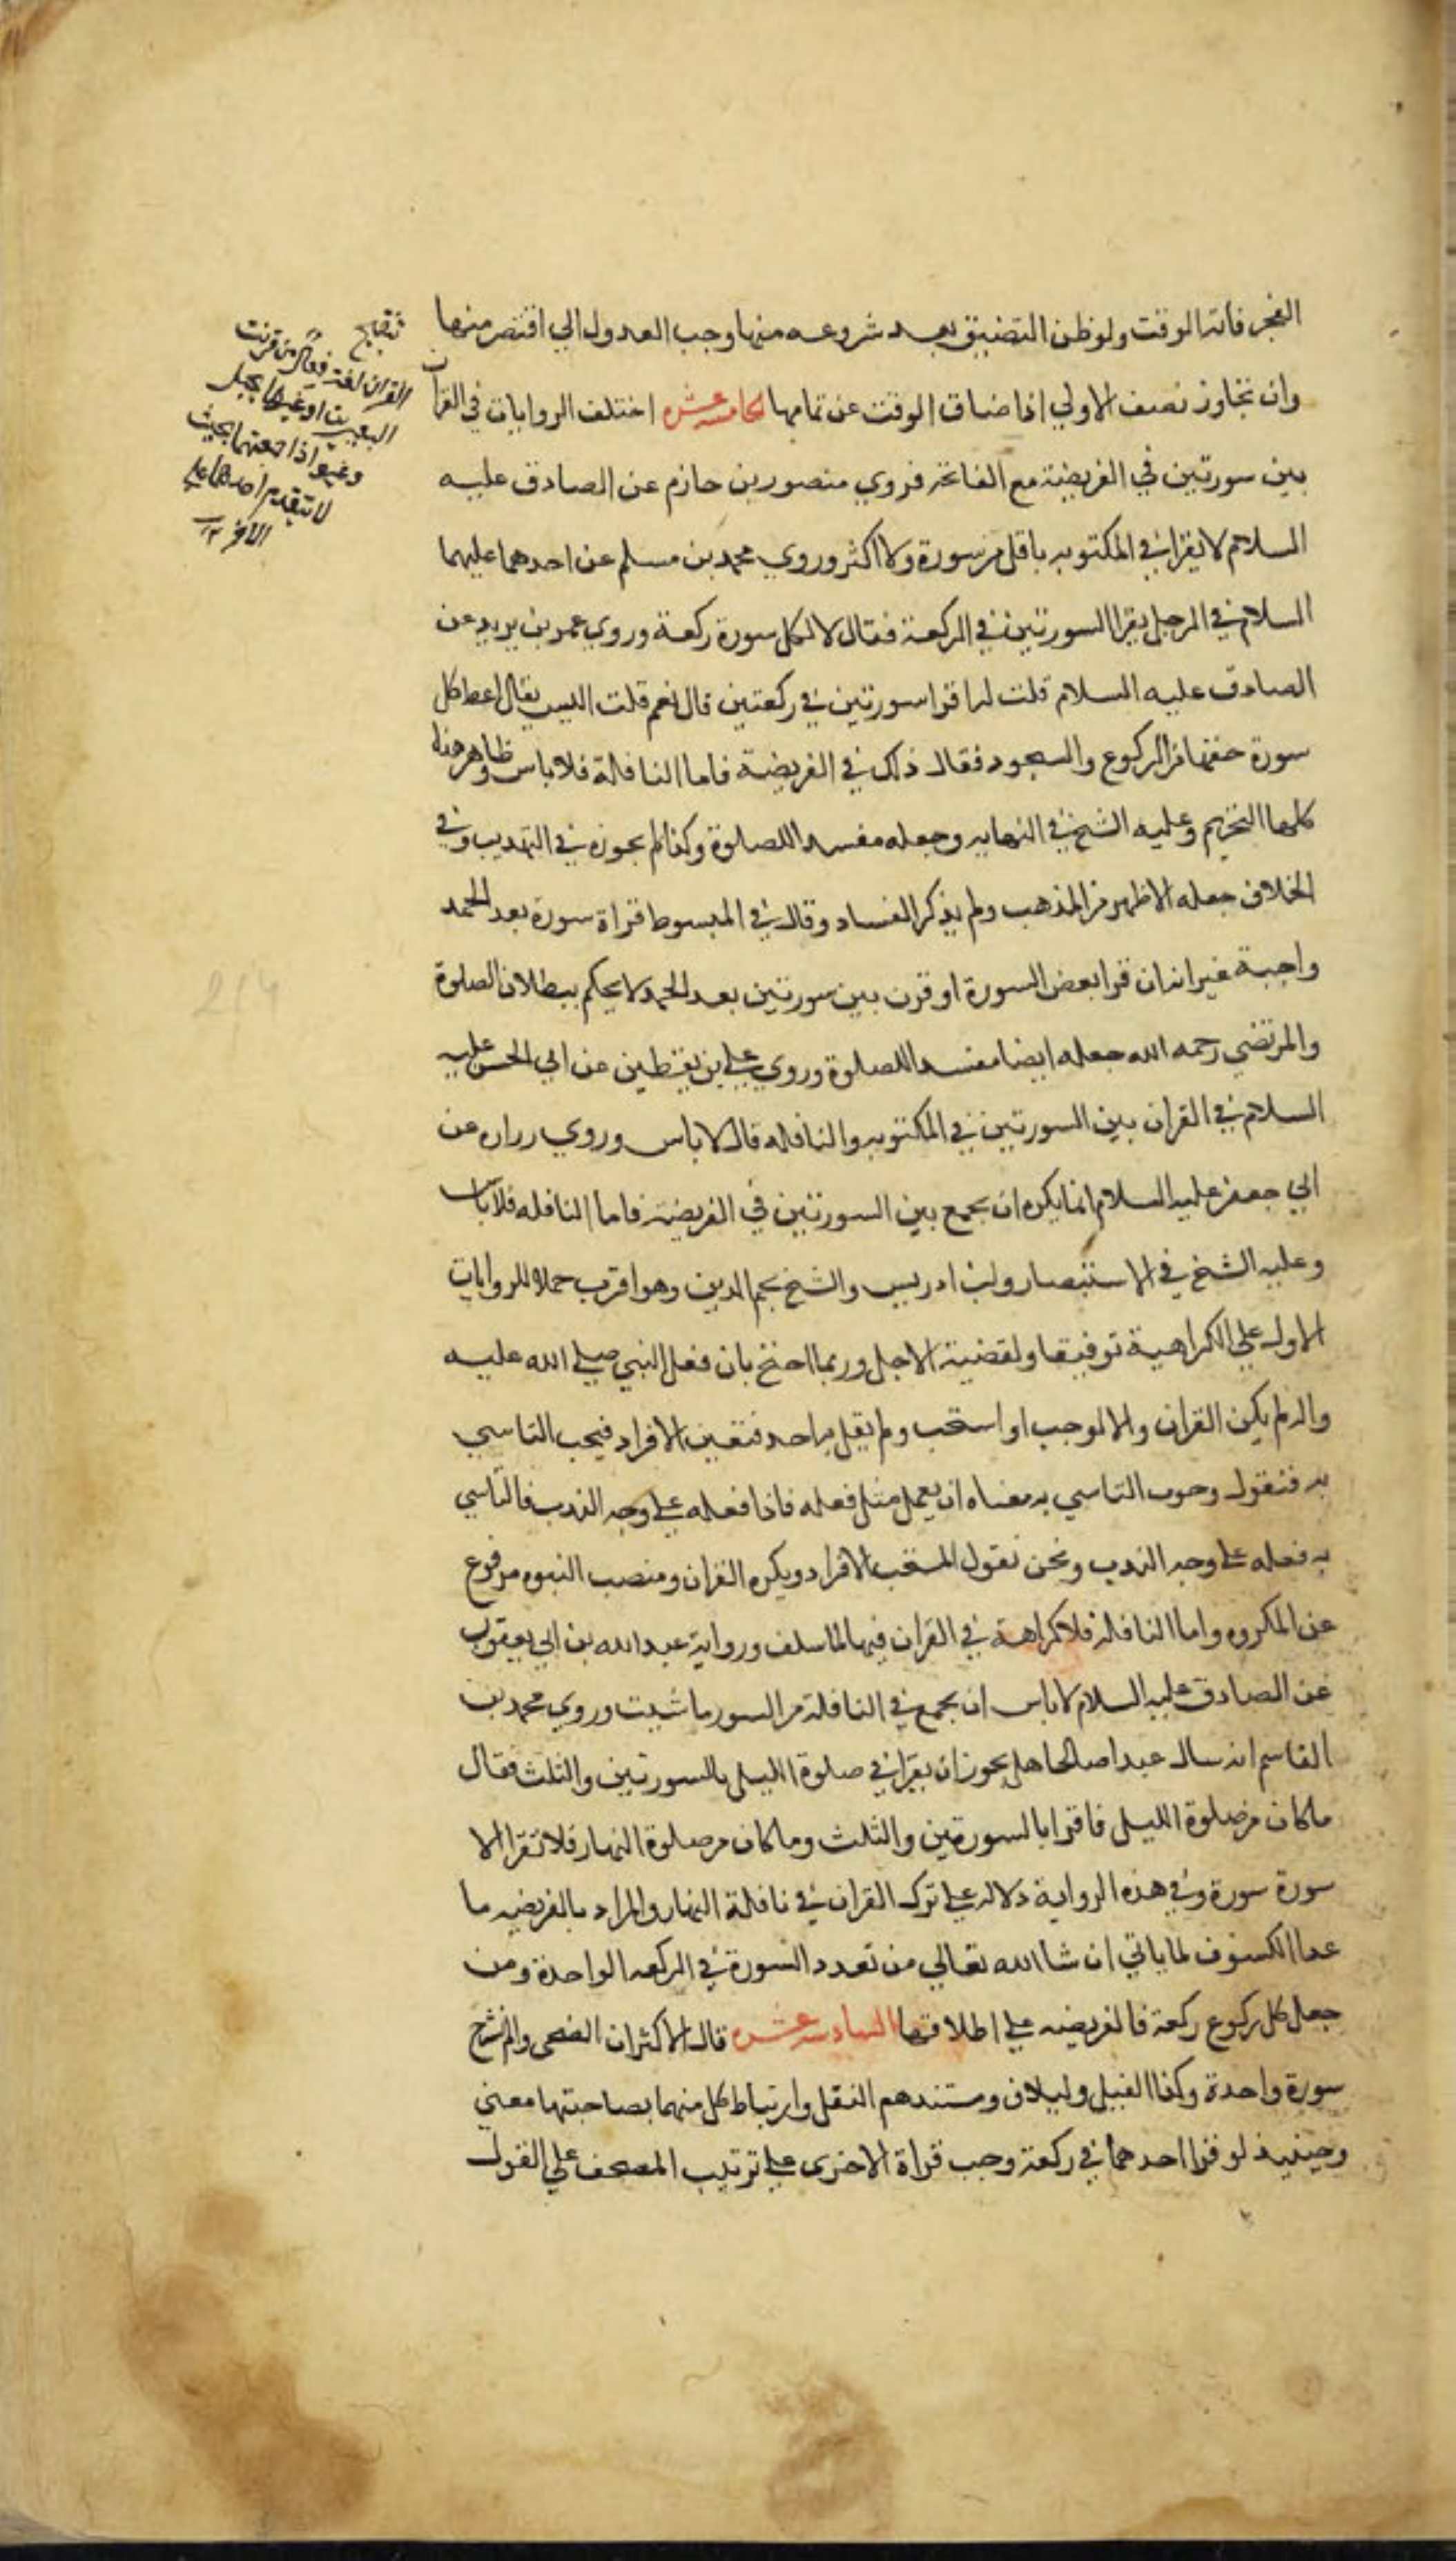 الفجر فاته الوقت ولو ظن التضييق بعد شروعه منها وجب العدول الي اقتصر منها
وان تجاوز نصف الاولي اذا ضاق الوقت عن تمامها الخامسة عشره اختلف الروايات في القران
بين سورتين في الفريضة مع الفاتحة فروي منصور بن حازم عن الصادق عليه
السلام لا يقرا في المكتوبه باقل من سورة ولا اكثر وروي محمد بن مسلم عن احدهما عليهما
السلام في الرجل يقرا السورتين في الركعة فقال لا لكل سورة ركعة وروي عمر بن يزيد عن
الصادق عليه السلام قلت له اقرا سورتين في ركعتين قال نعم قلت اليس يقال اعط كل
سورة حقها من الركوع والسجود فقال ذلك في الفريضة فاما النافلة فلا باس وظاهر هذه
كلها التحريم وعليه الشيخ في النهايه وجعله مفسدا للصلوة وكذا لم يجوزه في التهذيب وفي
الخلاف جعله الاظهر من المذهب ولم يذكر الفساد وقال في المبسوط قراة سورة بعد الحمد
واجبة غير انه ان قرا بعض السورة او قرن بين سورتين بعد الحمد لا يحكم ببطلان الصلوة
والمرتضي رحمه الله جعله ايضا مفسدا للصلوة وروي علي بن يقطين عن ابي الحسن عليه
السلام في القران بين السورتين في المكتوبه والنافله قال لا باس وروي زراره عن
ابي جعفر عليه السلام انما يكره ان يجمع بين السورتين في الفريضة فاما النافله فلا باس
وعليه الشيخ في الاستبصار وابن ادريس والشيخ نجم الدين وهو اقرب حملا للروايات
الاول علي الكراهية توفيقا ولقضية الاصل وربما احتج بان فعل النبي صلي الله عليه
واله لم يكن القران والا لوجب او استحب ولم يقل به احد فتعين الافراد فيجب التاسي
به فنقول وجوب التاسي به معناه ان يعمل مثل فعله فاذا فعله علي وجه الندب فالتاسي
به فعله علي وجه الندب ونحن نقول المستحب الافراد ويكره القران ومنصب النبوه مرفوع
عن المكروه واما النافلة فلا كراهة في القران فيها لما سلف ورواية عبد الله بن ابي يعفور
عن الصادق عليه السلام لا باس ان يجمع في النافلة من السور ما شيت وروي محمد بن
القاسم انه سال عبدا صالحا هل يجوز ان يقرا في صلوة الليل بالسورتين والثلث فقال
ما كان من صلوة الليل فاقرا بالسورتين والثلث وما كان من صلوة النهار فلا تقرا الا
سورة سورة وفي هذه الرواية دلاله علي ترك القران في نافلة النهار والمراد بالفريضه ما
عدا الكسوف لما ياتي ان شا الله تعالي من تعدد السورة في الركعه الواحدة ومن
جعل كل ركوع ركعة فالفريضه علي اطلاقها السادسه عشره قال الاكثر ان الضحي والم نشرح
سورة واحدة وكذا الفيل ولايلاف ومستندهم النقل وارتباط كل منهما بصاحبتها معني
وحينيذ لو قرا احدهما في ركعة وجب قراة الاخري علي ترتيب المصحف علي القول
القران لغة من قرنت
البعيرين او غيرهما بحبل
وغيره اذا جمعتهما بحيث
لا يتقدم احدهما علي
الاخر ١٢